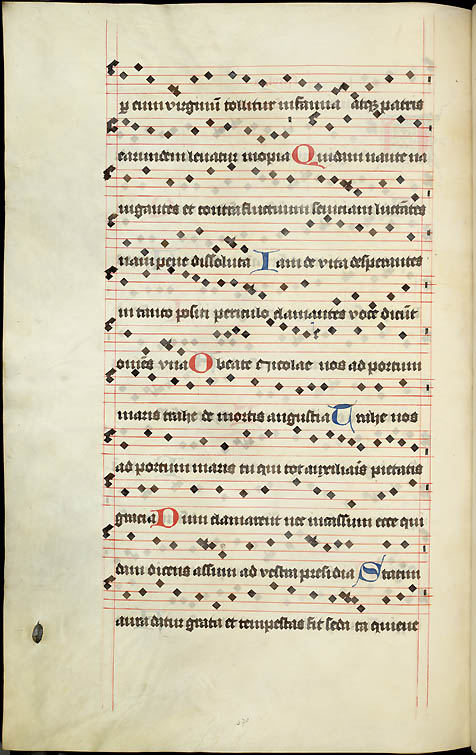 p eum virginum tollitur infamia atqz patris
earundem levatur inopia Quidam naute na
vigantes et contra fluctuum seviciam luctantes
navi pene dissoluta Iam de vita desperantes
in tanto positi periculo clamantes voce dicunt
omnes una O beate Nicolae nos ad portum
maris trahe de mortis angustia Trahe nos
ad portum maris tu qui tot auxiliaris pietatis
gracia Dum clamarent nec incassum ecce qui
dam dicens assum ad vestra presidia Statim
aura datur grata et tempestas fit sedata quieve